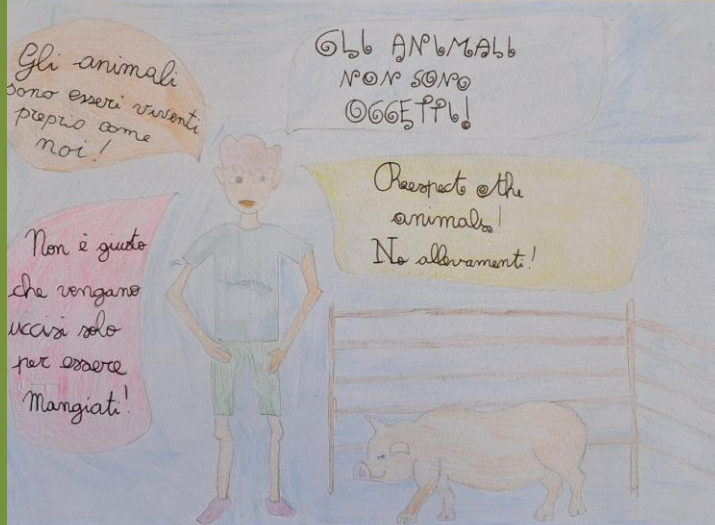 Gli animali
sono esseri viventi
proprio come
noi!
GLI ANIMALI
NON SONO
OGGETTI!
Reespect the
animals!
No allevamenti!
Non è giusto
che vengano
uccisi solo
per essere
Mangiati!